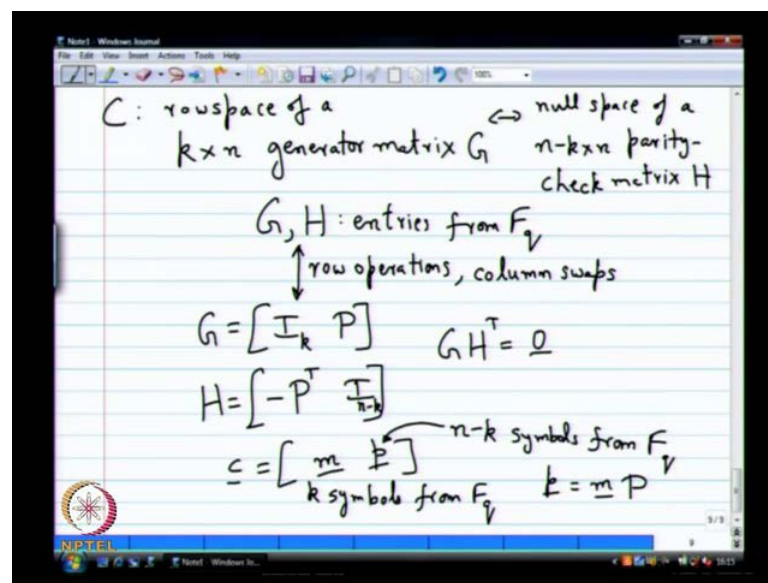 Note1 - Windows Journal
File Edit View Insert Actions Tools Help
100%
C : rowspace of a ⟷ null space of a
k×n generator matrix G n-k×n parity-
check matrix H
G, H : entries from F_q
↕ row operations, column swaps
G = [ I_k P ] GH^T = 0
H = [ -P^T I_{n-k} ]
n-k symbols from F_q
c = [ m p ]
k symbols from F_q p = m P
9/9
9
NPTEL
Note1 - Windows Jo...
16:15